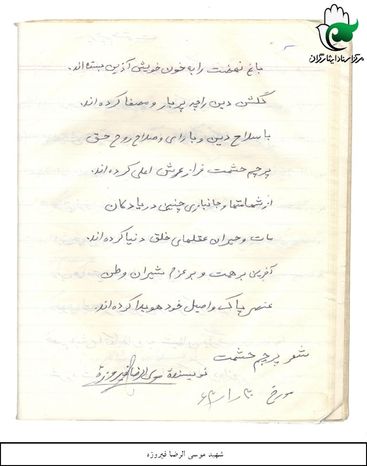 مرکز اسناد ایثارگران
باغ نهضت را به خون خویش آذین بسته اند.
گلشن دین را چه پربار و مصفا کرده اند.
با سلاح دین و با رای و صلاح روح حق
پرچم حشمت فراز عرش اعلی کرده اند.
از شهامتها و جانبازی چنین دریادلان
مات و حیران عقلهای خلق دنیا کرده اند.
آفرین بر همت و بر عزم شیران وطن
عنصر پاک و اصیل خود هویدا کرده اند.
شعر پرچم حشمت
نویسنده موسی الرضا فیروزه
مورخ
شهید موسی الرضا فیروزه